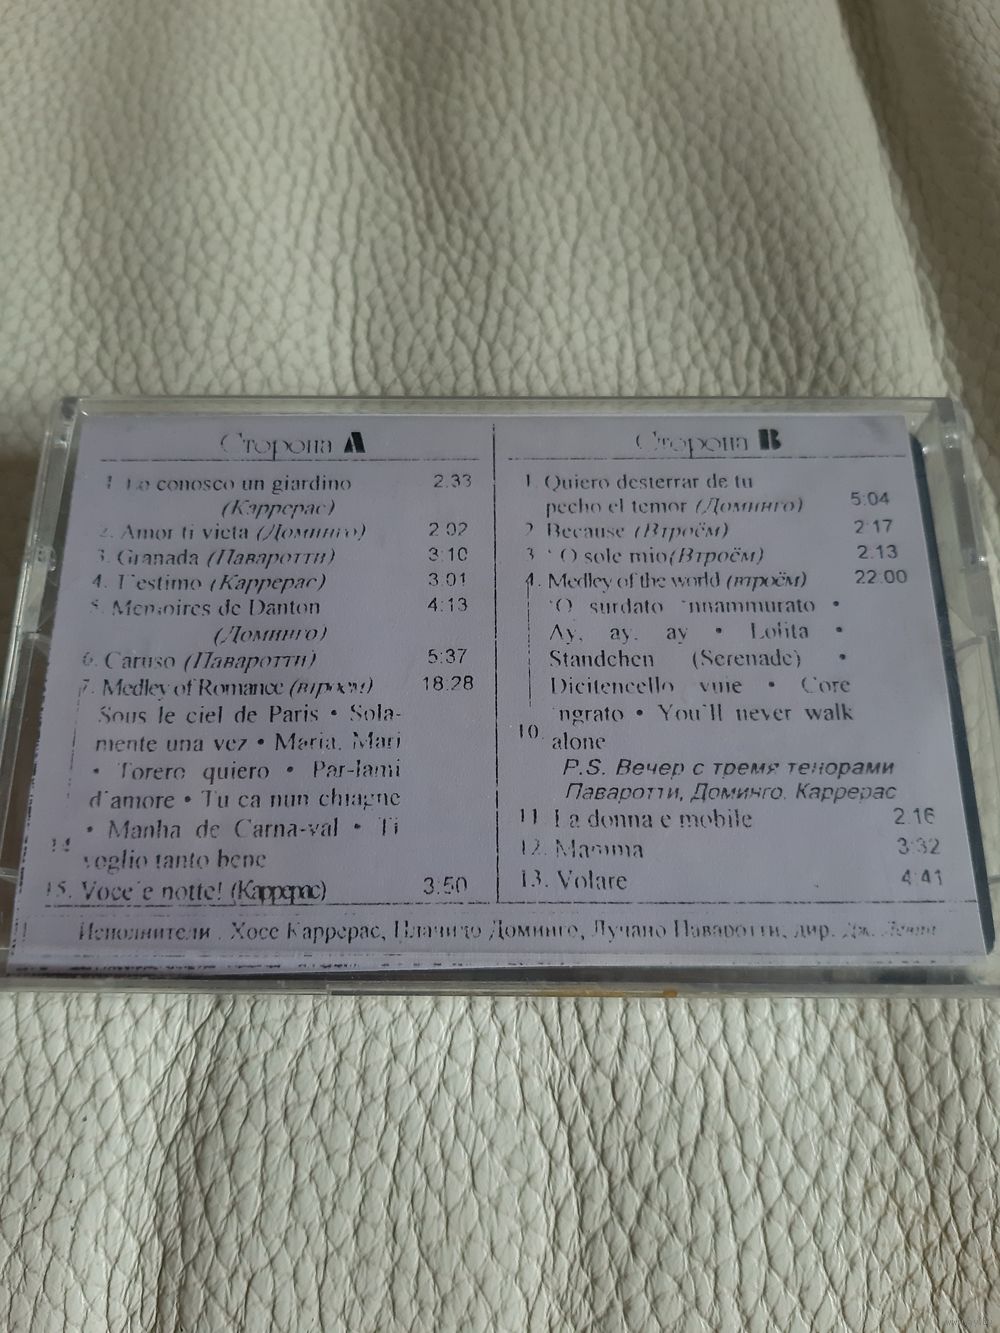 Сторона A
1. Io conosco un giardino 2.33
(Кэррерас)
2. Amor ti vieta (Доминго) 2.02
3. Granada (Паваротти) 3:10
4. T'estimo (Каррерас) 3.01
5. Memoires de Danton 4:13
(Доминго)
6. Caruso (Паваротти) 5:37
7. Medley of Romance (втроём) 18.28
Sous le ciel de Paris • Sola-
mente una vez • Maria, Mari
• Torero quiero • Par-lami
d'amore • Tu ca nun chiagne
• Manha de Carna-val • Ti
14
voglio tanto bene
15. Voce'e notte! (Каррерас) 3:50
Сторона B
1. Quiero desterrar de tu
pecho el temor (Доминго) 5:04
2 Because (Втроём) 2:17
3. 'O sole mio(Втроём) 2.13
4. Medley of the world (втроём) 22.00
'O surdato 'nnammurato •
Ay, ay, ay • Lolita •
Standchen (Serenade) •
Dicitencello vuie • Core
'ngrato • You'll never walk
10.
alone
P.S. Вечер с тремя тенорами
Паваротти, Доминго, Каррерас
11. La donna e mobile 2.16
12. Mamma 3:32
13. Volare 4:41
Исполнители . Хосе Каррерас, Плачидо Доминго, Лучано Паваротти, дир. Дж.